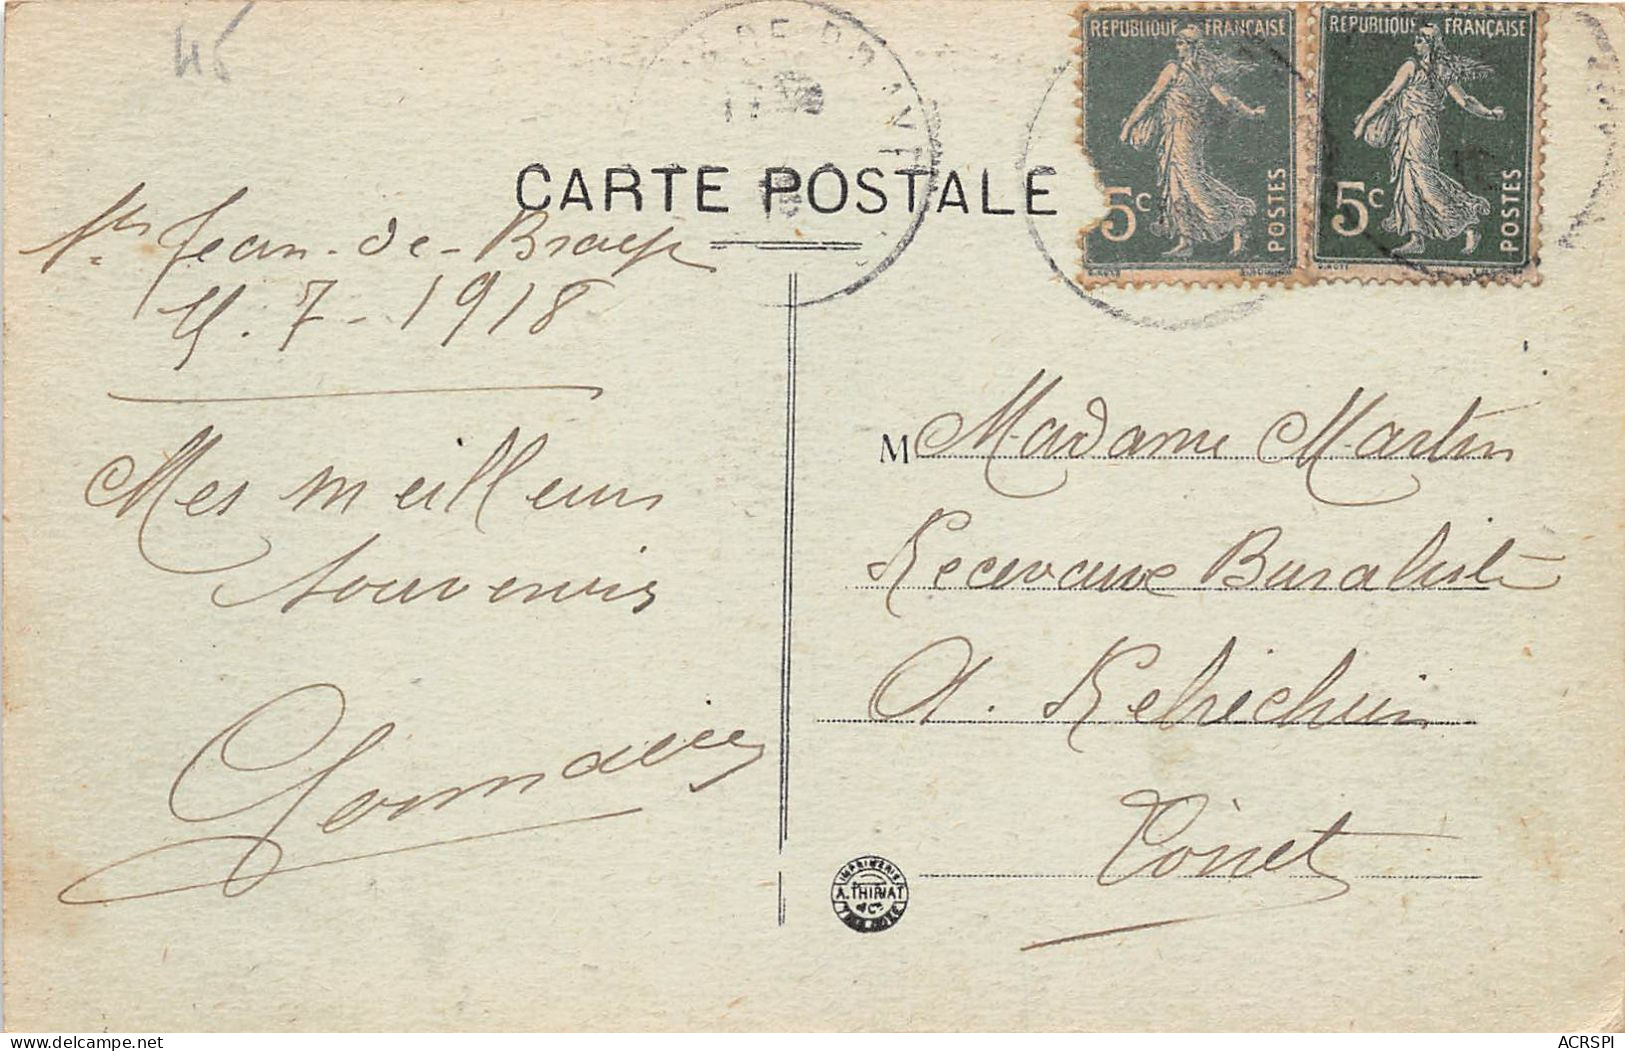 45
RÉPUBLIQUE FRANÇAISE
5c
POSTES
RÉPUBLIQUE FRANÇAISE
5c
POSTES
CARTE POSTALE
St Jean-de-Braye
7-1918
Mes meilleurs
souvenirs
M Madame Martin
Receveuse Buraliste
A. Rebréchien
Loiret
IMPRIMERIE
A. THIRIAT
& Cie
ACRSPI